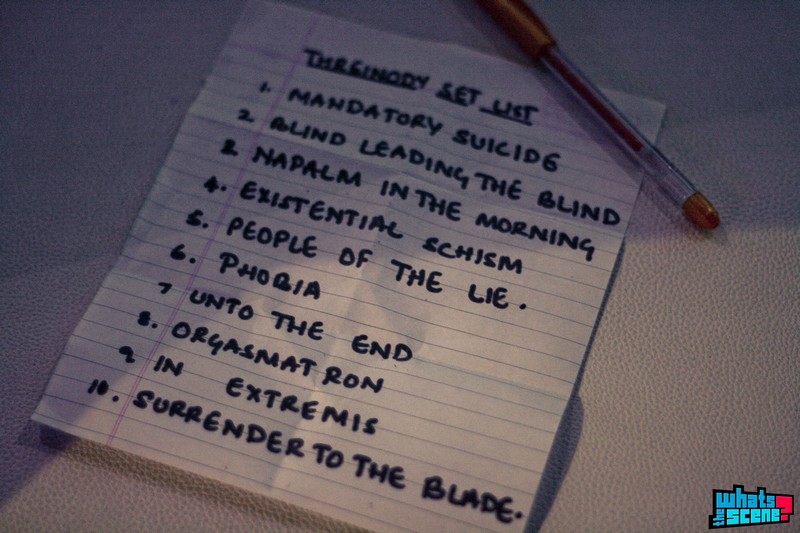 THREINODY SET LIST
1. MANDATORY SUICIDE
2. BLIND LEADING THE BLIND
3. NAPALM IN THE MORNING
4. EXISTENTIAL SCHISM
5. PEOPLE OF THE LIE.
6. PHOBIA
7 UNTO THE END
8. ORGASMATRON
9 IN EXTREMIS
10. SURRENDER TO THE BLADE.
whats
the scene?